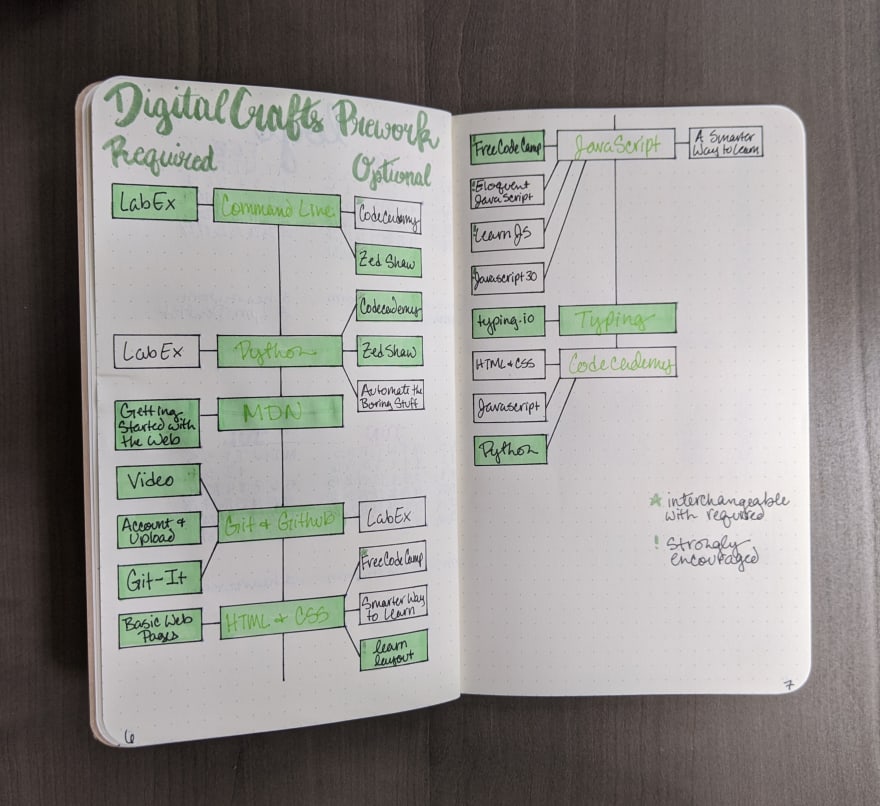 DigitalCrafts Prework
Required
Optional
LabEx
Command Line
Codecademy
Zed Shaw
LabEx
Python
Codecademy
Zed Shaw
Automate the
Boring Stuff
Getting
Started with
the Web
MDN
Video
Account &
Upload
Git-It
Git & Github
LabEx
Basic Web
Pages
HTML & CSS
FreeCodeCamp
Smarter Way
to Learn
learn
layout
6
FreeCodeCamp
JavaScript
A Smarter
Way to Learn
Eloquent
JavaScript
learn JS
Javascript30
typing.io
Typing
HTML & CSS
Codecademy
Javascript
Python
☆ interchangeable
with required
! Strongly
encouraged
7